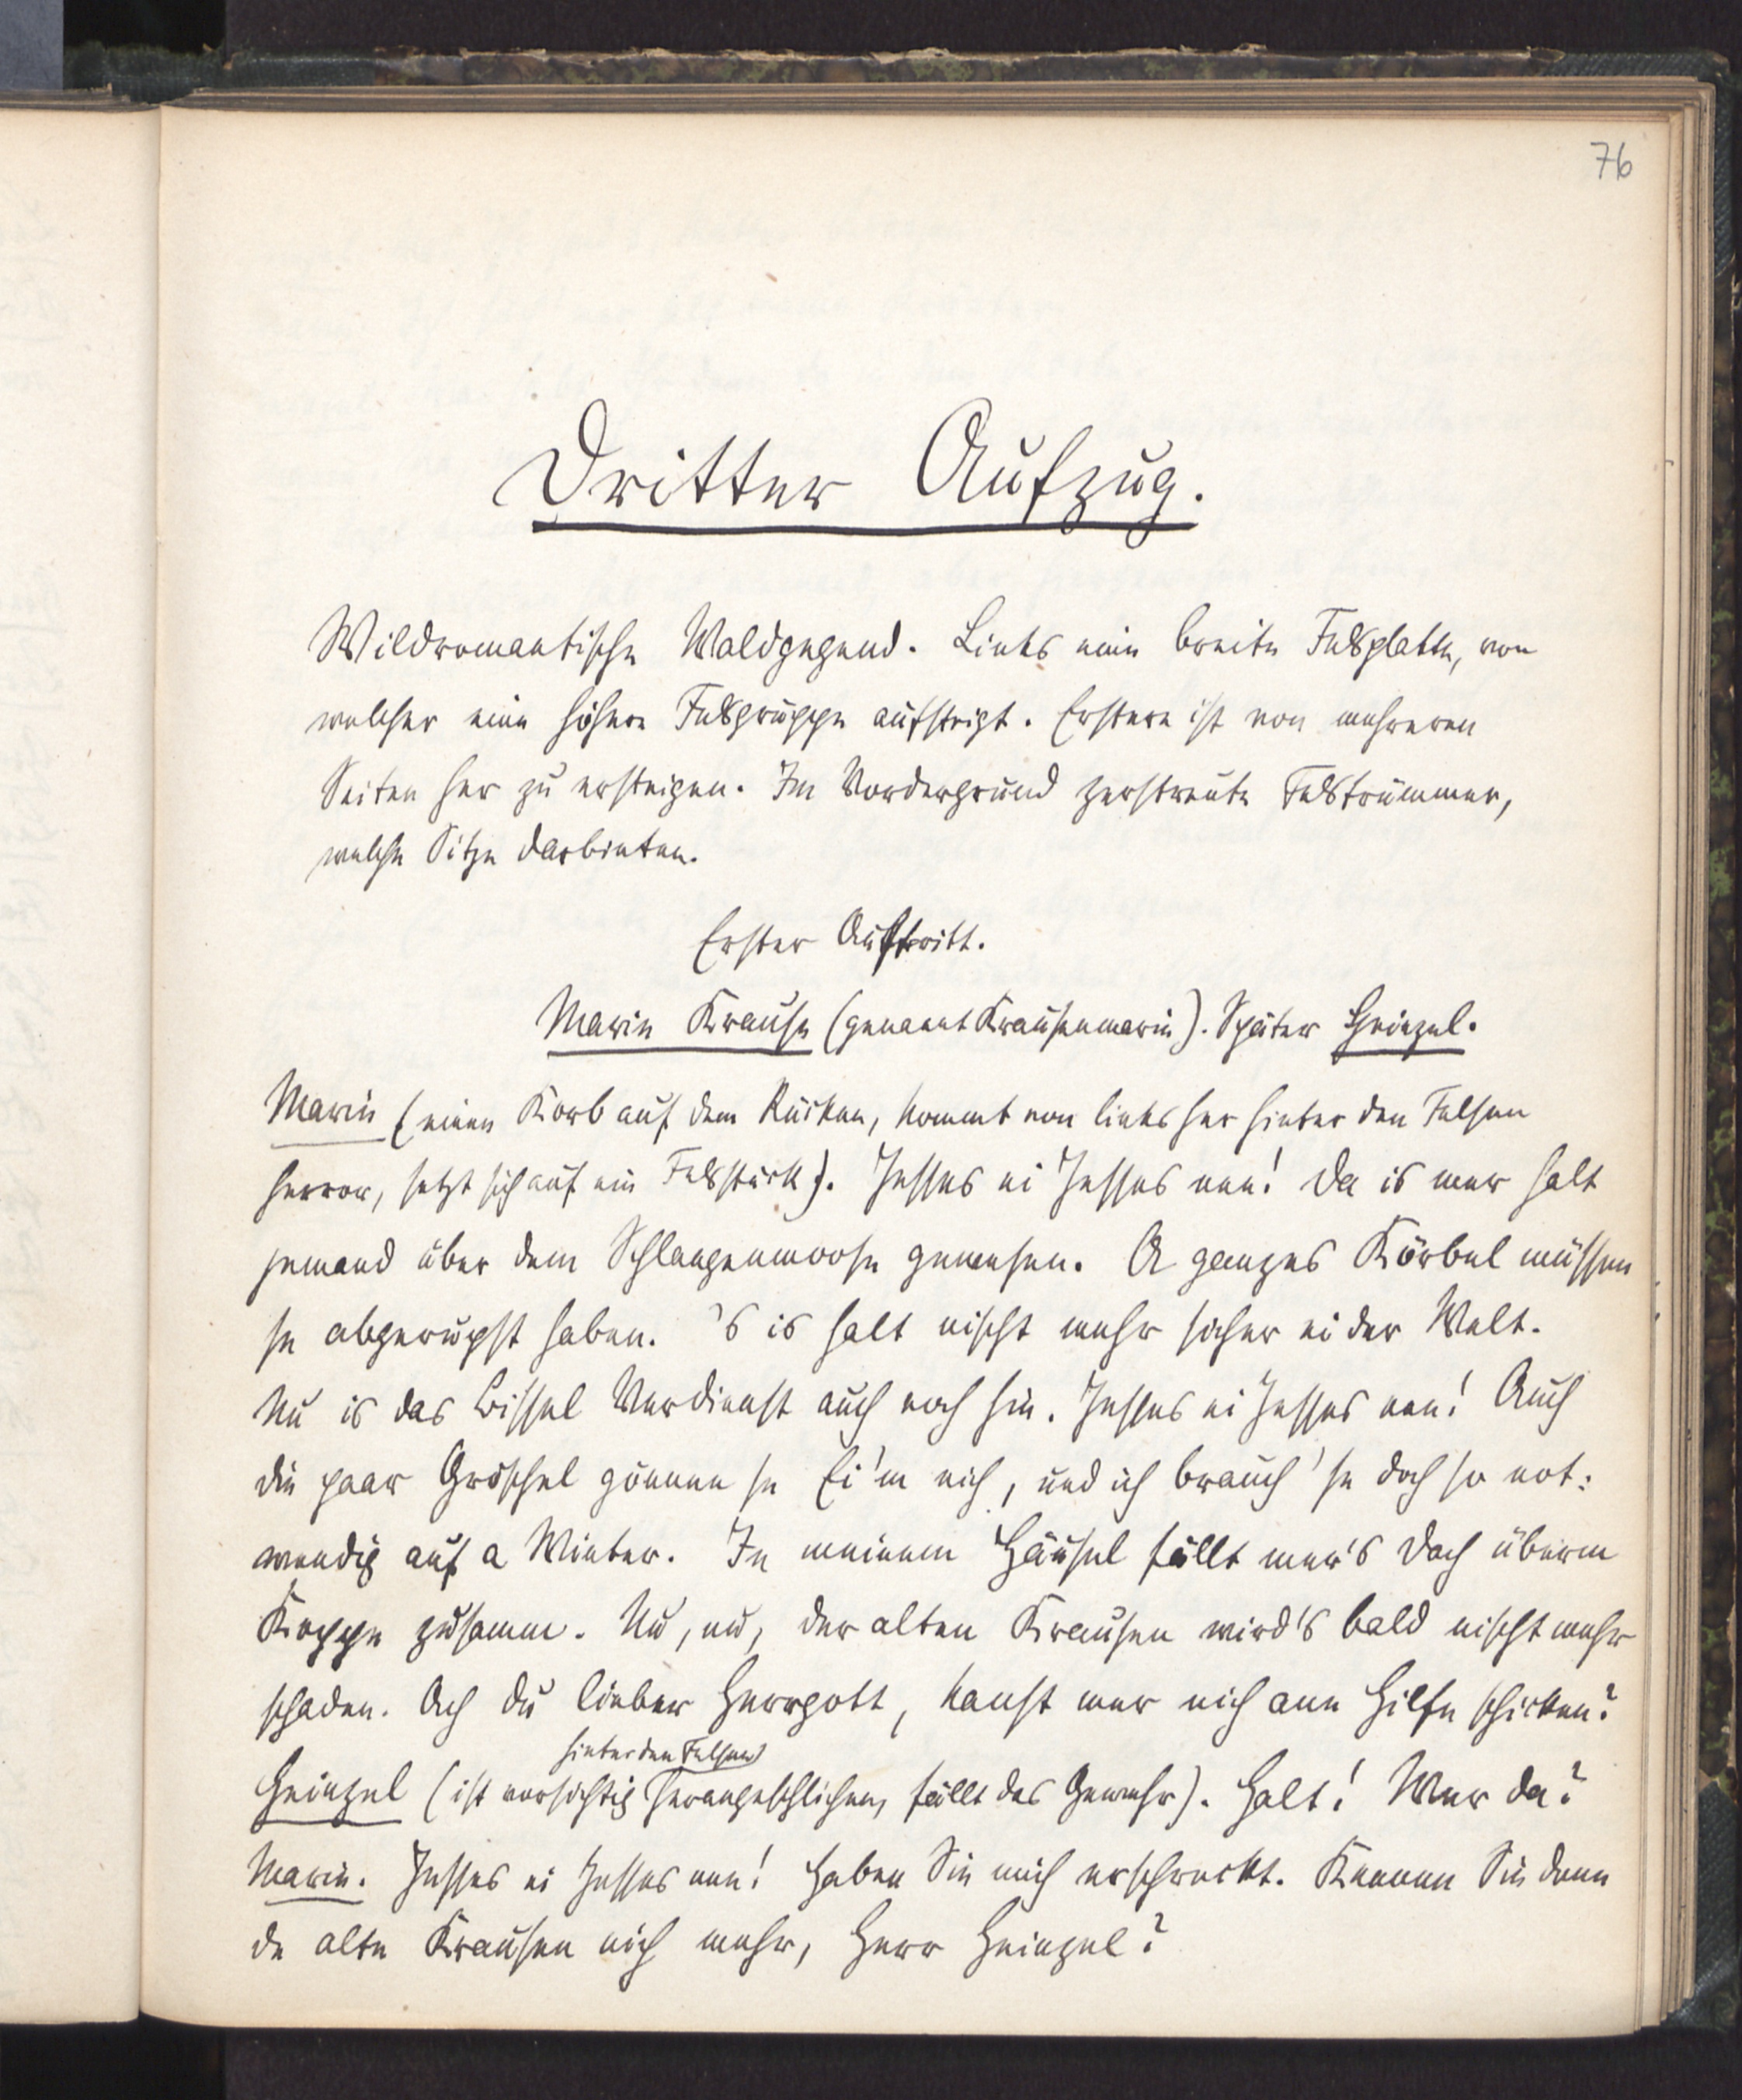 76
Dritter Aufzug.
Wildromantische Waldgegend. Links eine breite Felsplatte, von
welcher eine höhere Felsgruppe aufsteigt. Erstere ist von mehreren
Seiten her zu ersteigen. Im Vordergrund zerstreute Felstrümmer,
welche Sitze darbieten.
Erster Auftritt.
Marie Krause (genannt Krausenmarie). Später Heinzel.
Marie (einen Korb auf dem Rücken, kommt von links her hinter den Felsen
hervor, setzt sich auf ein Felsstück). Jesses ei Jesses nee! Da is mer halt
jemand über dem Schlangenmoose gewesen. A ganzes Körbel müssen
se abgerupft haben. 's is halt nischt mehr sicher ei der Welt.
Nu is das bissel Verdienst auch noch hin. Jesses ei Jesses nee! Auch
die paar Gröschel gönnen se Ei'm nich, und ich brauch' se doch so not:
wendig auf a Winter. In meinem Häusel fällt mer's Dach überm
Koppe zusamm. Nu, nu, der alten Krausen wird's bald nischt mehr
schaden. Ach du lieber Herrgott, kannst mer nich ene Hilfe schicken?
hinter den Felsen
Heinzel (ist vorsichtig herangeschlichen, fällt das Gewehr). Halt! Wer da?
Marie. Jesses ei Jesses nee! Haben Sie mich erschreckt. Kennen Sie denn
de alte Krausen nich mehr, Herr Heinzel?